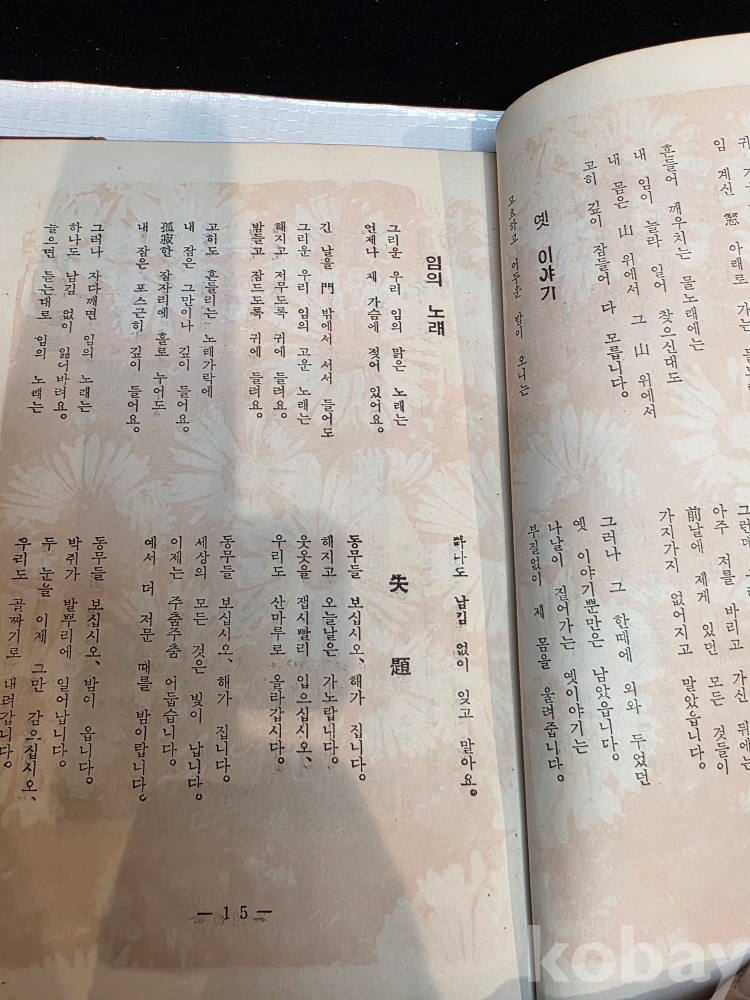 임 계신 窓 아래로 가는 물노래
흔들어 깨우치는 물노래에는
내 임이 놀라 일어 찾으신대도
내 몸은 山 위에서 그 山 위에서
고히 깊이 잠들어 다 모릅니다.
옛 이야기
고요하고 어두운 밤이 오니는
그런데
아주 저를 바리고 가신 뒤에는
前날에 제게 있던 모든 것들이
가지가지 없어지고 말았읍니다.
그러나 그 한때에 외와 두었던
옛 이야기뿐만은 남았읍니다.
나날이 짙어가는 옛이야기는
부절없이 제 몸을 울려줍니다.
임의 노래
그리운 우리 임의 맑은 노래는
언제나 제 가슴에 젖어 있어요.
긴 날을 門 밖에서 서서 들어도
그리운 우리 임의 고운 노래는
해지고 저무도록 귀에 들려요.
밤들고 잠드도록 귀에 들려요.
고히도 흔들리는 노래가락에
내 잠은 그만이나 깊이 들어요.
孤寂한 잠자리에 홀로 누어도
내 잠은 포스근히 깊이 들어요.
그러나 자다깨면 임의 노래는
하나도 남김 없이 잃어바려요.
들으면 듣는대로 임의 노래는
하나도 남김 없이 잊고 말아요.
失題
동무들 보십시오、해가 집니다.
해지고 오늘날은 가노랍니다.
웃옷을 잽시빨리 입으십시오、
우리도 산마루로 올라갑시다.
동무들 보십시오、해가 집니다.
세상의 모든 것은 빛이 납니다.
이제는 주춤주춤 어둡습니다.
예서 더 저문 때를 밤이랍니다.
동무들 보십시오、밤이 옵니다.
박쥐가 발뿌리에 일어납니다.
두 눈을 이제 그만 감으십시오、
우리도 골짜기로 내려갑니다.
— 15 —
kobay